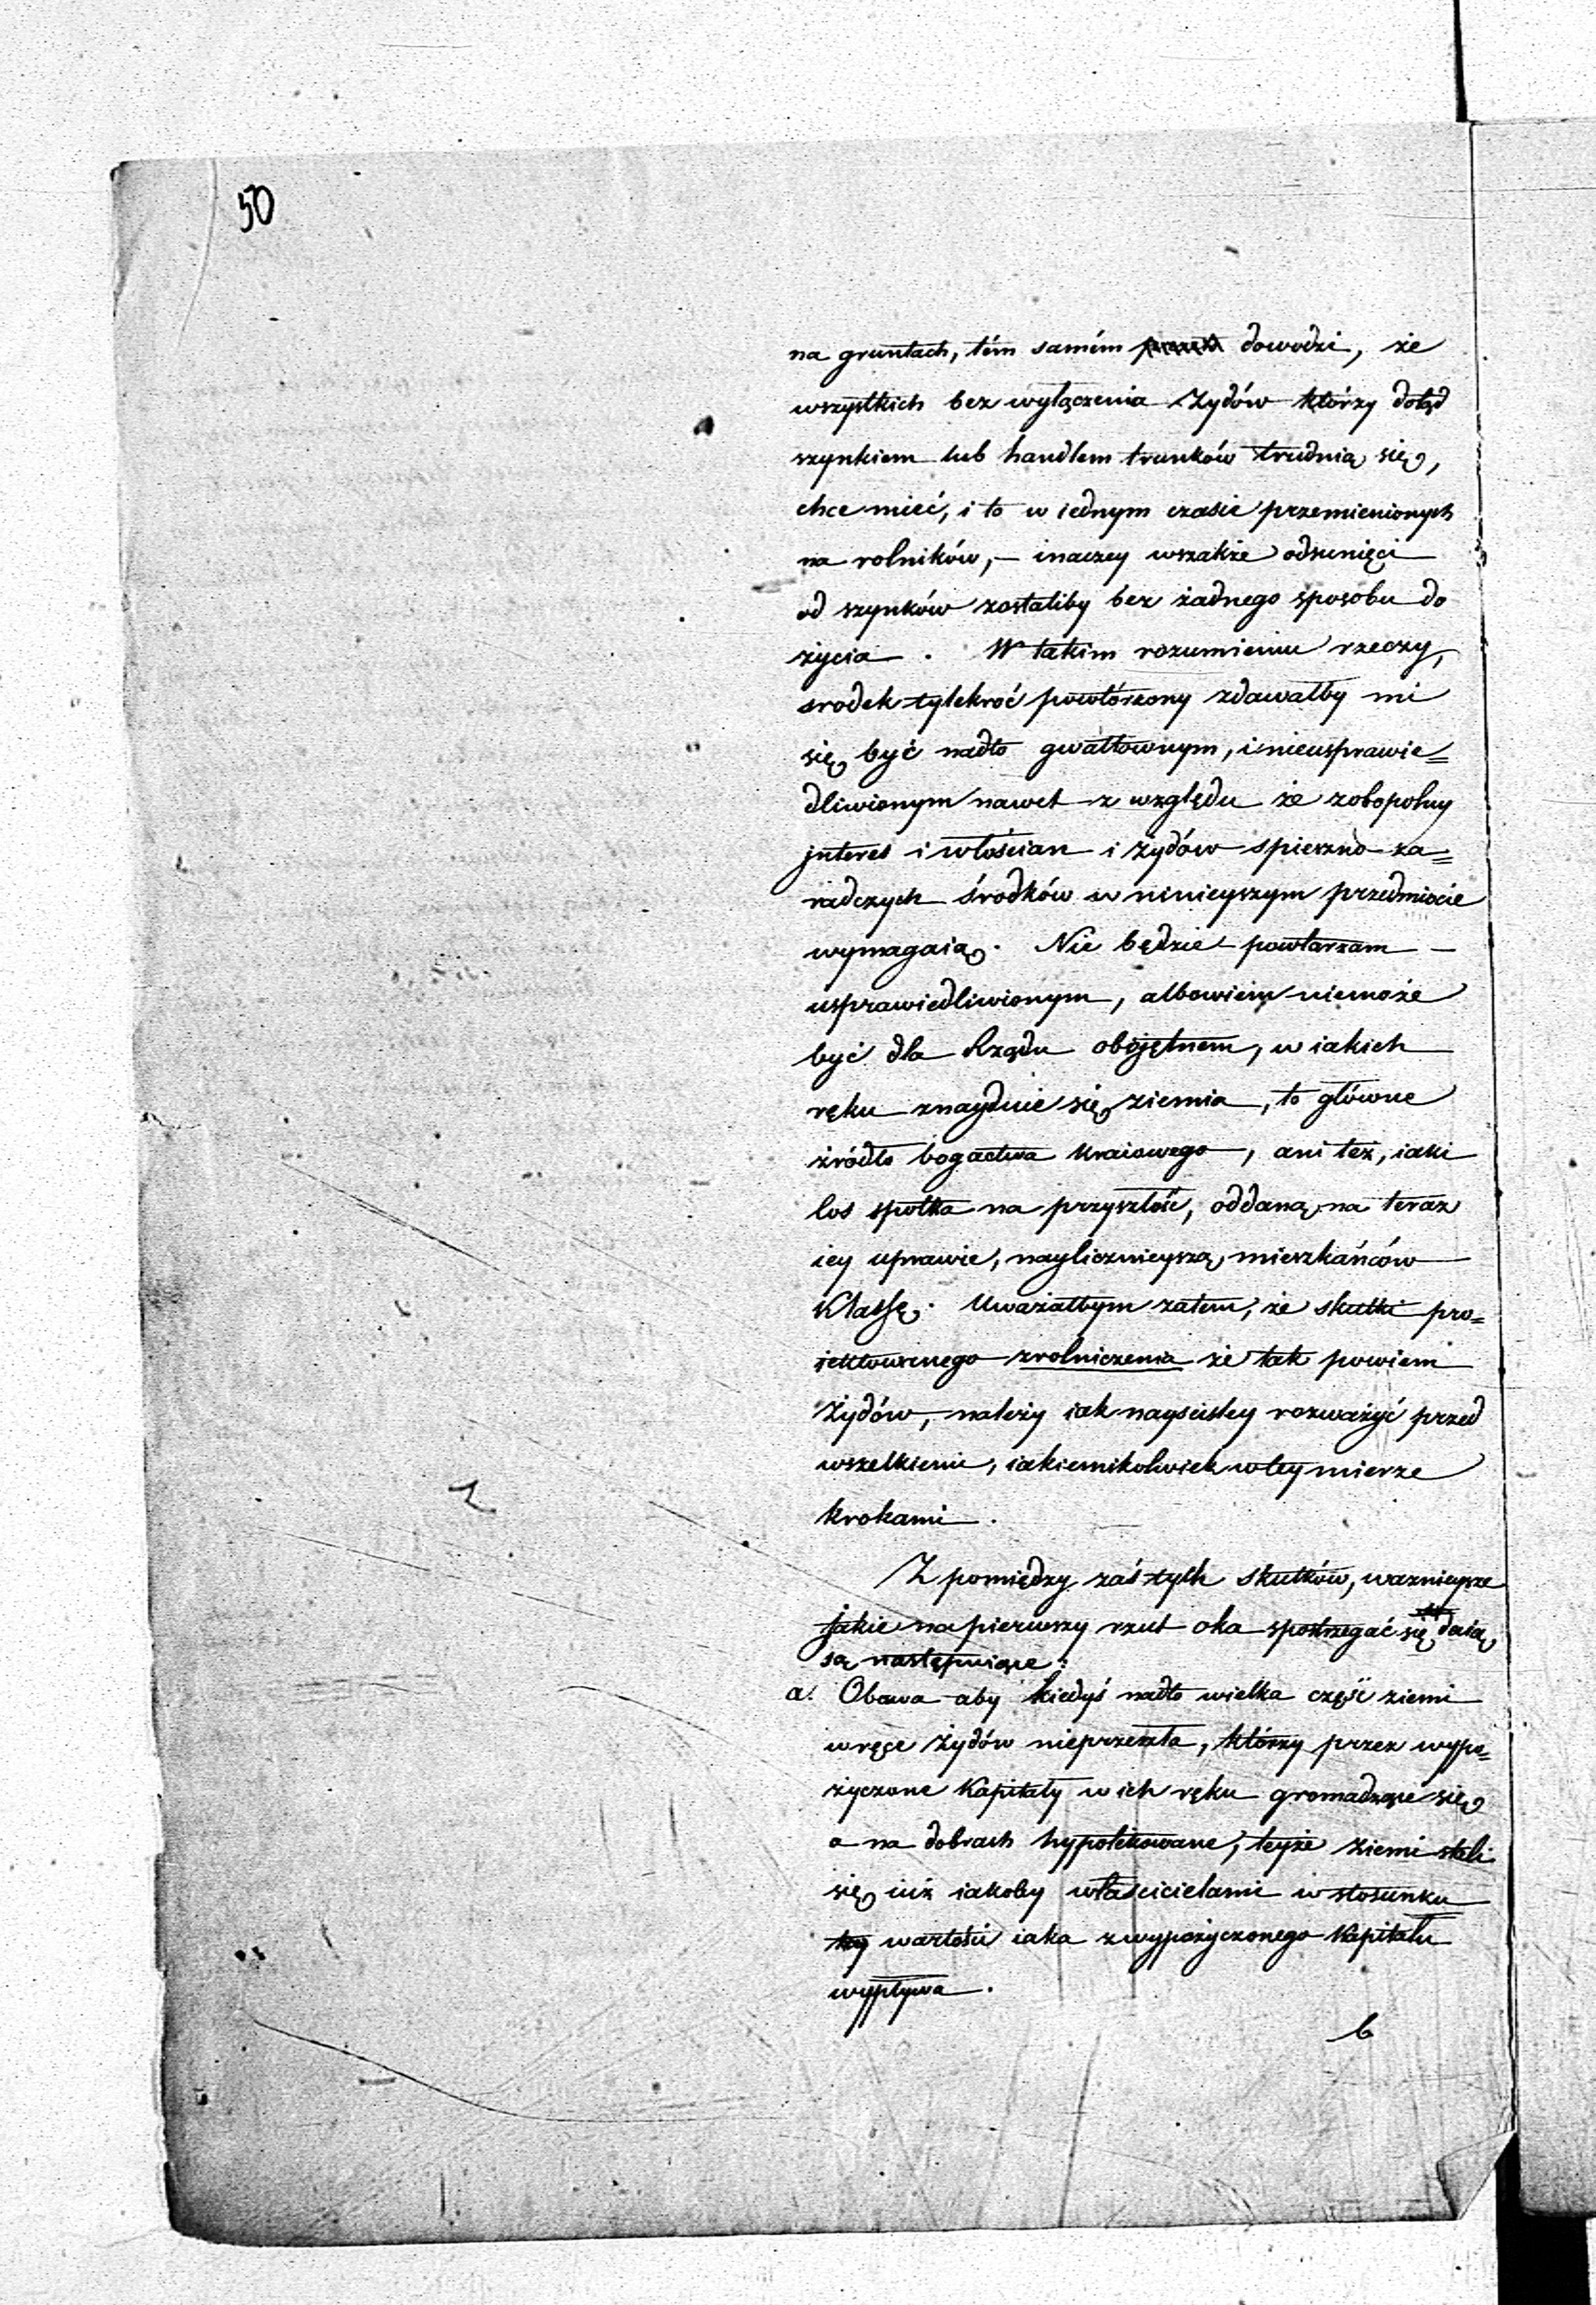 50
na gruntach, tém samém dowodzi, że
wszystkich bez wyłączenia Żydów którzy dotąd
szynkiem lub handlem trunków trudnią się,
chce mieć, i to w iednym czasie przemienionych
na rolników, – inaczey wszakże odsunięci
od szynków zostaliby bez żadnego sposobu do
życia. W takim rozumieniu rzeczy,
srodek tylekroć powtórzony zdawałby mi
się być nadto gwałtownym, i nieusprawie=
dliwionym nawet z względu że zobopolny
jnteres i włościan i Żydów spieszno za=
radczych środków w ninieyszym przedmiocie
wymagaią. Nie będzie powtarzam –
usprawiedliwionym, albowiem niemoże
być dla Rządu obojętnem, w iakich
ręku znayduie się ziemia, to główne
źródło bogactwa kraiowego, ani też, iaki
los spotka na przyszłość, oddaną na teraz
iey uprawie, naylicznieyszą mieszkańców
Klassę. Uważałbym zatem, że skutki pro=
iektowanego zrolniczenia że tak powiem
Żydów, należy iak nayściśley rozważyć przed
wszelkiemi, iakiemikolwiek w tey mierze
krokami.
Z pomiędzy zaś tych skutków, ważnieysze
jakie na pierwszy rzut oka spostrzegać się daią
są następuiące:
a. Obawa aby kiedyś nadto wielka część ziemi
w ręce Żydów nieprzeszła, którzy przez wypo=
życzone Kapitały w ich ręku gromadzące się
a na dobrach hypotekowane, teyże ziemi stali
się iuż iakoby właścicielami w stosunku
tey wartości iaka z wypożyczonego Kapitału
wypływa.
b